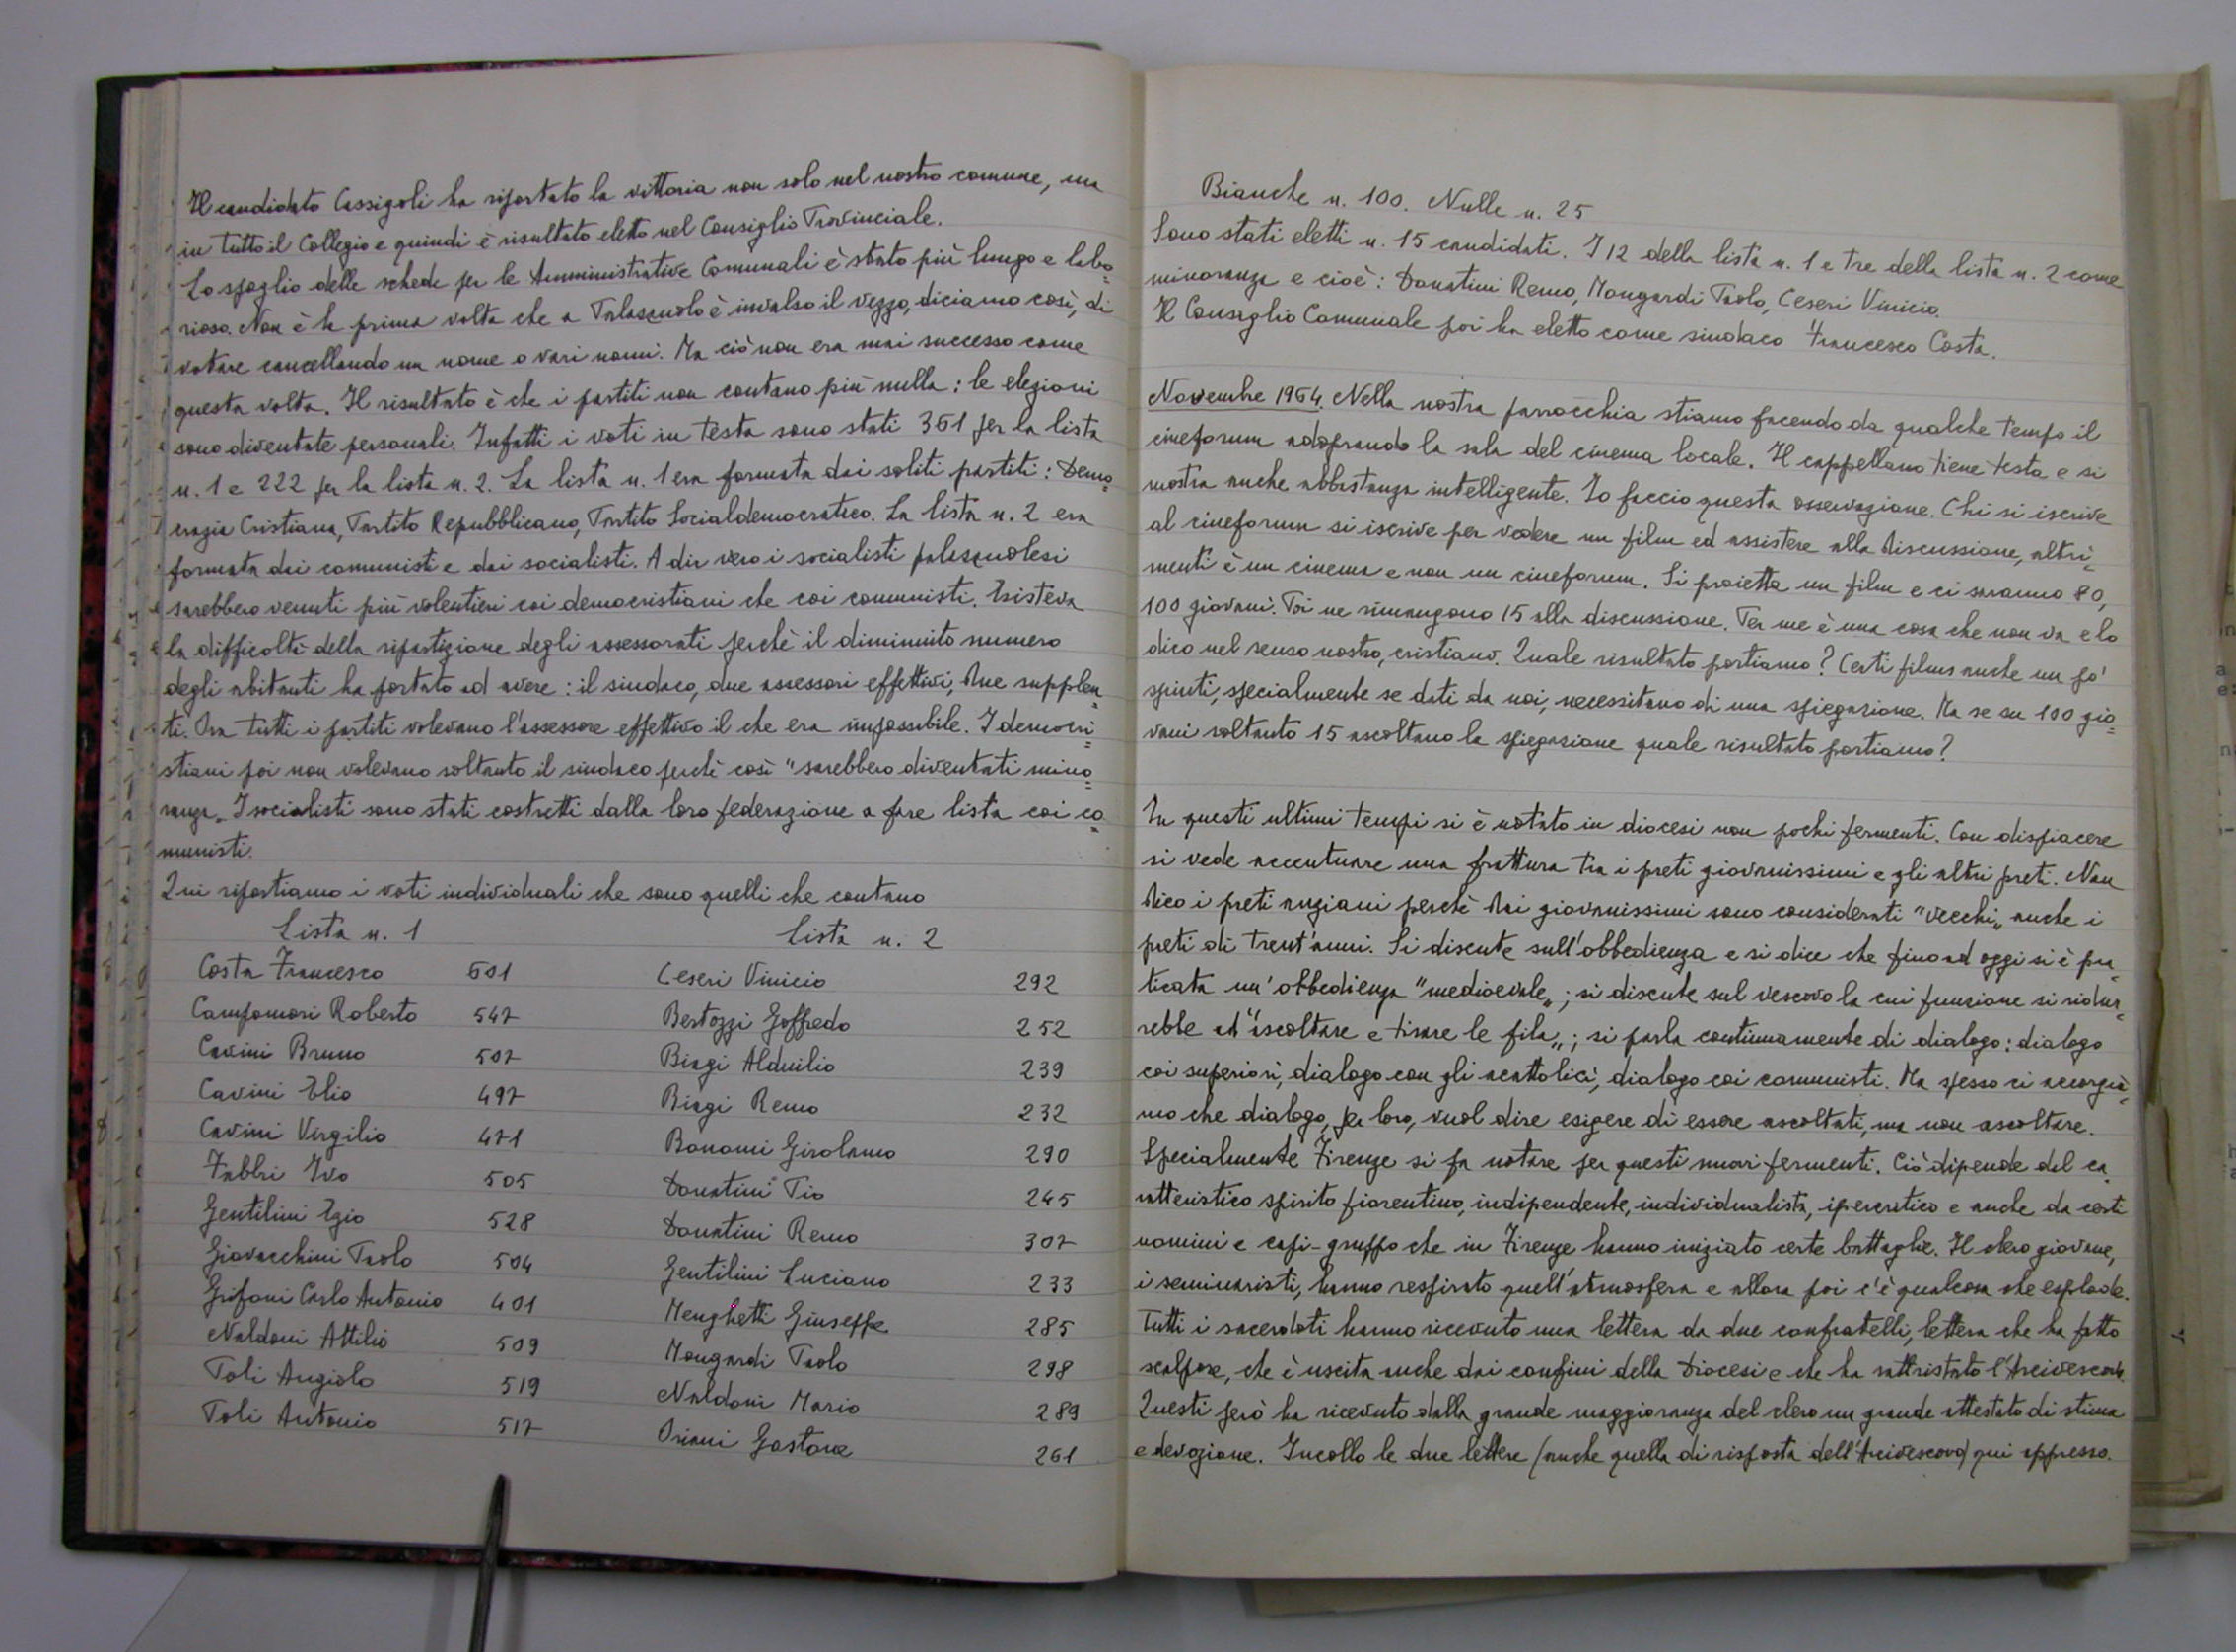 Il candidato Cassigoli ha riportato la vittoria non solo nel nostro comune, ma
in tutto il Collegio e quindi è risultato eletto nel Consiglio Provinciale.
Lo spoglio delle schede per le Amministrative Comunali è stato più lungo e labo=
rioso. Non è la prima volta che a Palazuolo è invalso il vezzo, diciamo così, di
votare cancellando un nome o vari nomi. Ma ciò non era mai successo come
questa volta. Il risultato è che i partiti non contano più nulla: le elezioni
sono diventate personali. Infatti i voti in testa sono stati 361 per la lista
n. 1 e 222 per la lista n. 2. La lista n. 1 era formata dai soliti partiti: Demo=
crazia Cristiana, Partito Repubblicano, Partito Socialdemocratico. La lista n. 2 era
formata dai comunisti e dai socialisti. A dir vero i socialisti palazuolesi
sarebbero venuti più volentieri coi democristiani che coi comunisti. Esisteva
la difficoltà della ripartizione degli assessorati perchè il diminuito numero
degli abitanti ha portato ad avere: il sindaco, due assessori effettivi, due supplen=
ti. Ora tutti i partiti volevano l'assessore effettivo il che era impossibile. I democri=
stiani poi non volevano soltanto il sindaco perchè così "sarebbero diventati mino=
ranza„. I socialisti sono stati costretti dalla loro federazione a fare lista coi co=
munisti.
Qui riportiamo i voti individuali che sono quelli che contano
Lista n. 1 Lista n. 2
Costa Francesco 601 Ceseri Vinicio 292
Campomori Roberto 547 Bertozzi Goffredo 252
Cavini Bruno 507 Biagi Alduilio 239
Cavini Elio 497 Biagi Remo 232
Cavini Virgilio 471 Bonomi Girolamo 290
Fabbri Ivo 505 Donatini Pio 245
Gentilini Egio 528 Donatini Remo 307
Giovacchini Paolo 504 Gentilini Luciano 233
Grifoni Carlo Antonio 401 Menghetti Giuseppe 285
Naldoni Attilio 509 Mongardi Paolo 298
Poli Angiolo 519 Naldoni Mario 289
Poli Antonio 517 Oriani Gastone 261
Bianche n. 100. Nulle n. 25
Sono stati eletti n. 15 candidati. I 12 della lista n. 1 e tre della lista n. 2 come
minoranza e cioè: Donatini Remo, Mongardi Paolo, Ceseri Vinicio.
Il Consiglio Comunale poi ha eletto come sindaco Francesco Costa.
Novembre 1964. Nella nostra parrocchia stiamo facendo da qualche tempo il
cineforum adoprando la sala del cinema locale. Il cappellano tiene testa e si
mostra anche abbastanza intelligente. Io faccio questa osservazione. Chi si iscrive
al cineforum si iscrive per vedere un film ed assistere alla discussione, altri=
menti è un cinema e non un cineforum. Si proietta un film e ci saranno 80,
100 giovani. Poi ne rimangono 15 alla discussione. Per me è una cosa che non va e lo
dico nel senso nostro, cristiano. Quale risultato portiamo? Certi films anche un po'
spinti, specialmente se dati da noi, necessitano di una spiegazione. Ma se su 100 gio=
vani soltanto 15 ascoltano la spiegazione quale risultato portiamo?
In questi ultimi tempi si è notato in diocesi non pochi fermenti. Con dispiacere
si vede accentuare una frattura tra i preti giovanissimi e gli altri preti. Non
dico i preti anziani perchè dai giovanissimi sono considerati "vecchi„ anche i
preti di trent'anni. Si discute sull'obbedienza e si dice che fino ad oggi si è pra=
ticata un'obbedienza "medioevale„; si discute sul vescovo la cui funzione si ridur=
rebbe ad "ascoltare e tirare le fila„; si parla continuamente di dialogo: dialogo
coi superiori, dialogo con gli acattolici, dialogo coi comunisti. Ma spesso ci accorgia=
mo che dialogo, per loro, vuol dire esigere di essere ascoltati, ma non ascoltare.
Specialmente Firenze si fa notare per questi nuovi fermenti. Ciò dipende dal ca=
ratteristico spirito fiorentino, indipendente, individualista, ipercritico e anche da certi
uomini e capi-gruppo che in Firenze hanno iniziato certe battaglie. Il clero giovane,
i seminaristi, hanno respirato quell'atmosfera e allora poi c'è qualcosa che esplode.
Tutti i sacerdoti hanno ricevuto una lettera da due confratelli, lettera che ha fatto
scalpore, che è uscita anche dai confini della Diocesi e che ha rattristato l'Arcivescovo.
Questi però ha ricevuto dalla grande maggioranza del clero un grande attestato di stima
e devozione. Incollo le due lettere (anche quella di risposta dell'Arcivescovo) qui appresso.